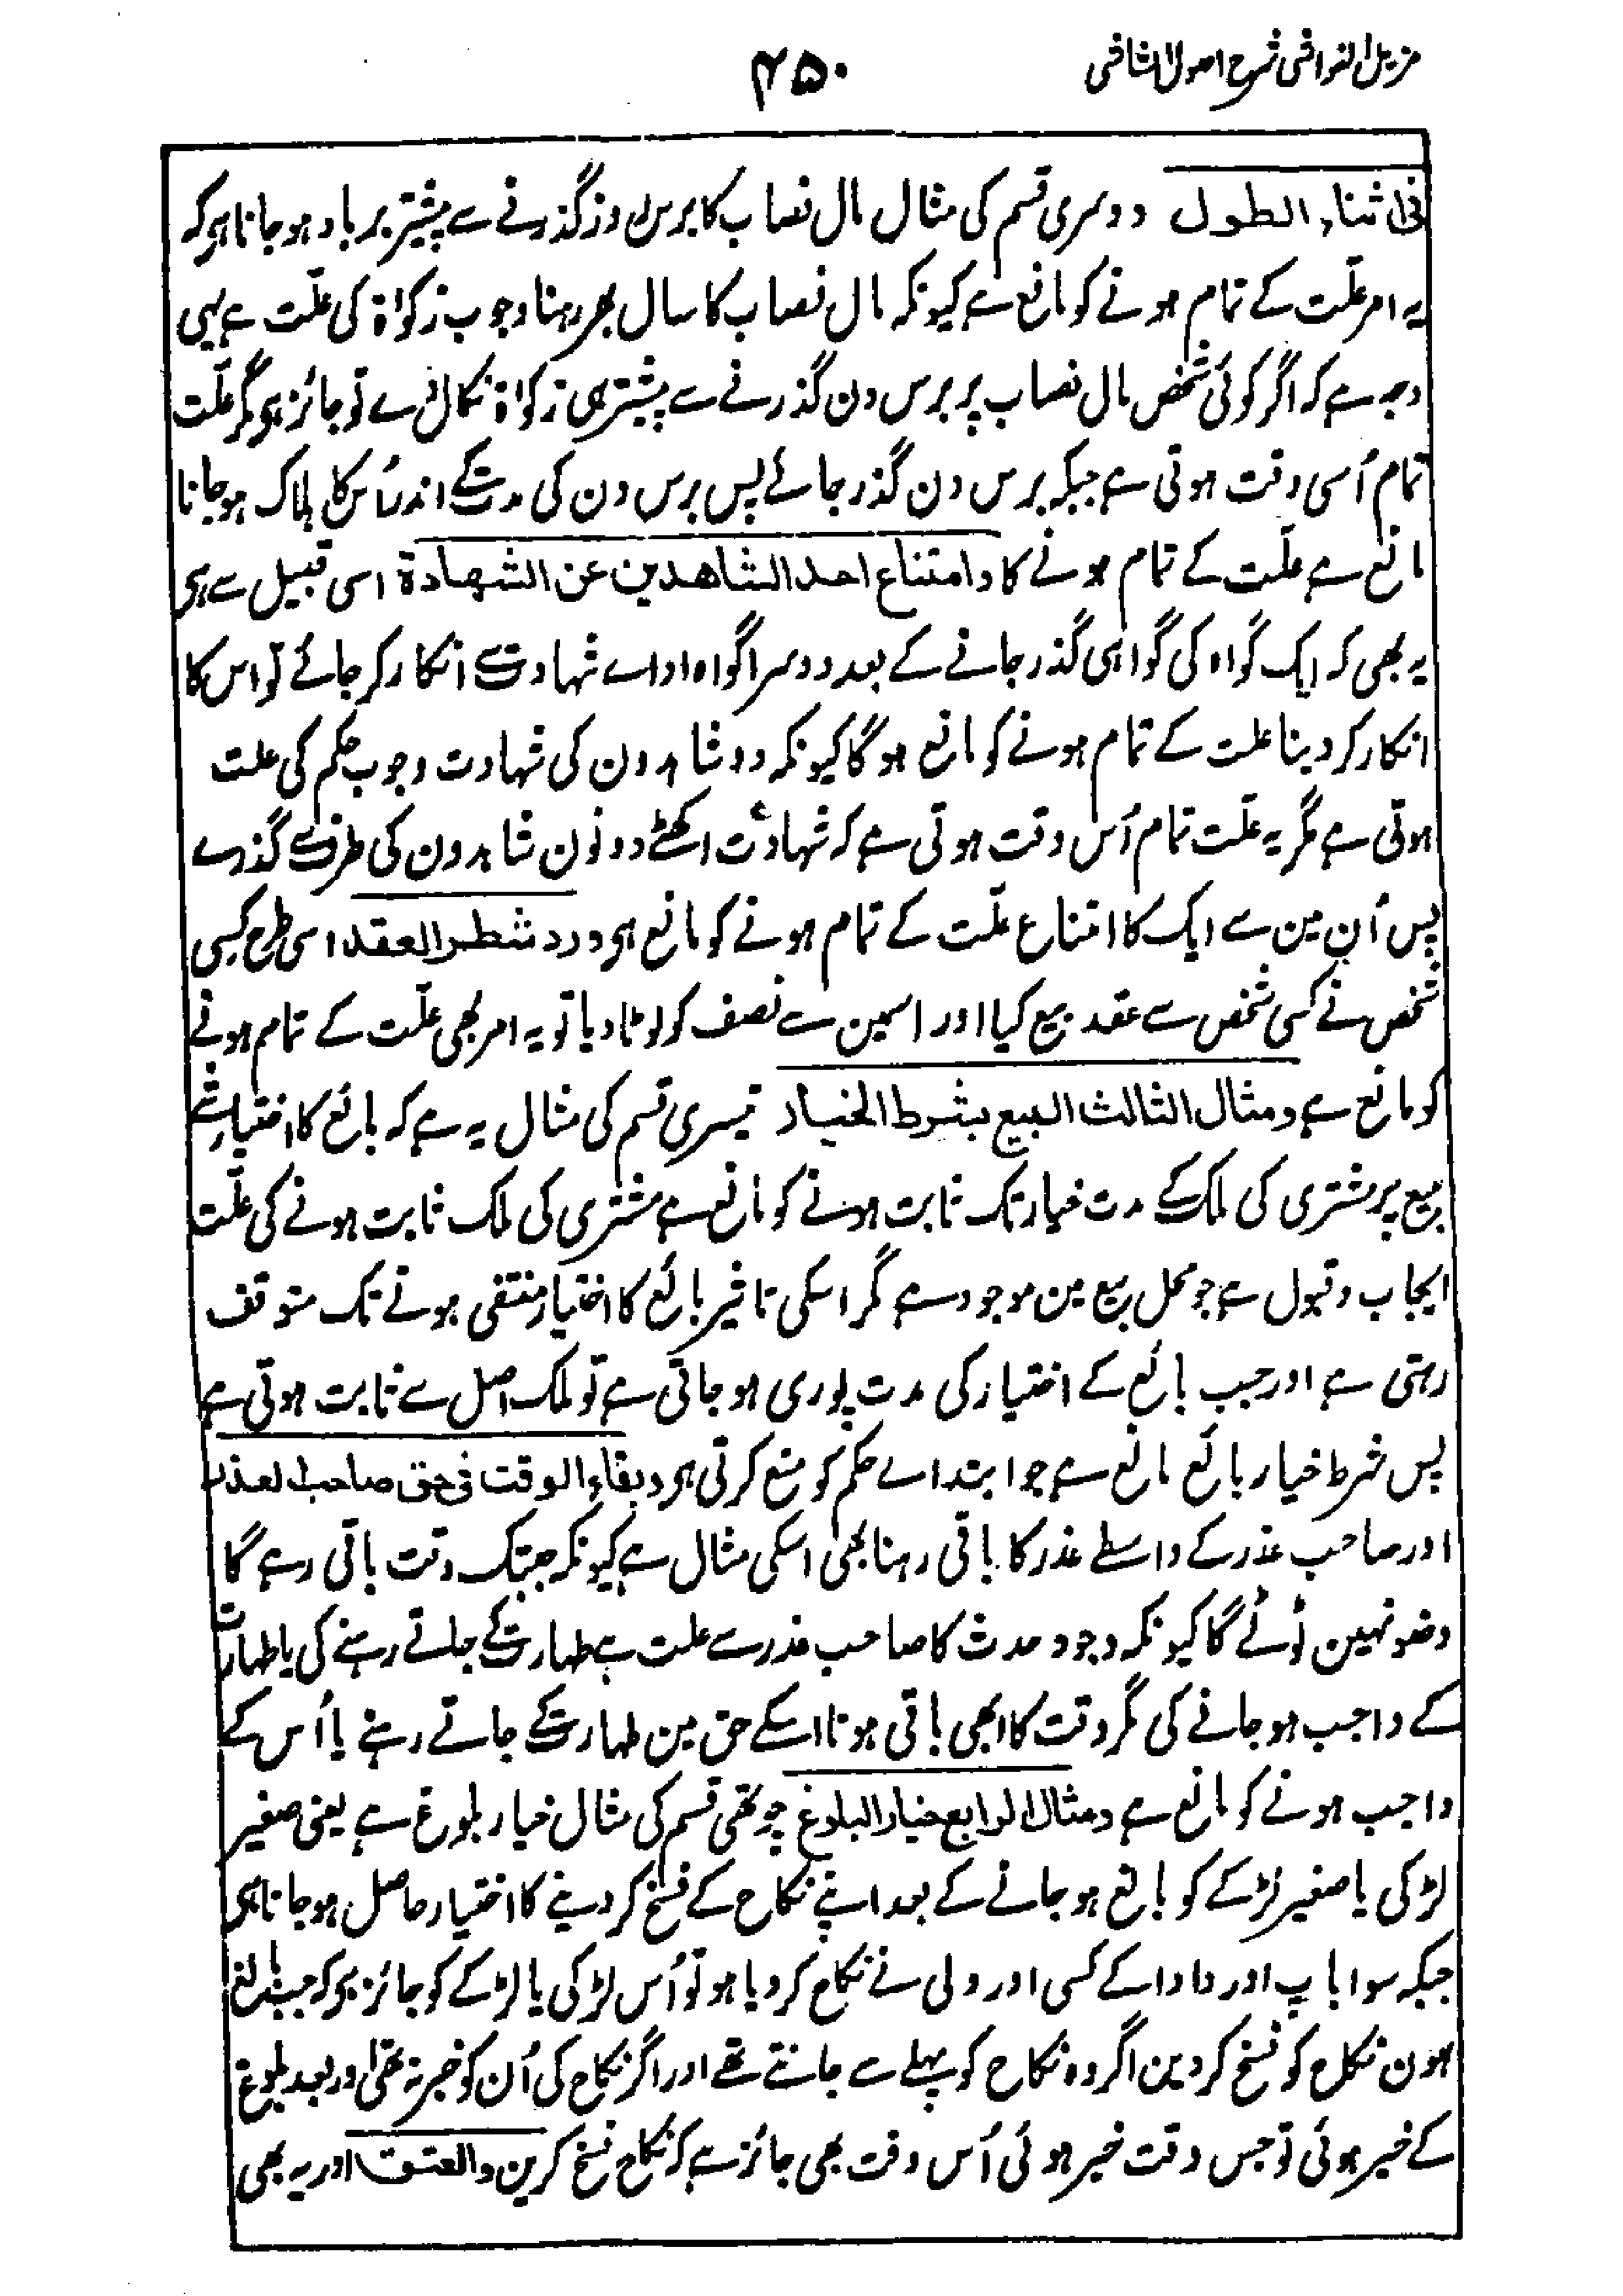 مزیل الغواشی شرح اصول الشاشی
۴۵۰
فی اثناء الطول دوسری قسم کی مثال مال نصاب کا برس روز گذرنے سے پیشتر برباد ہو جانا ہو کہ
یہ امر علّت کے تمام ہونے کو مانع ہے کیونکہ مال نصاب کا سال بھر رہنا وجوب زکواۃ کی علّت ہے یہی
وجہ ہے کہ اگر کوئی شخص مال نصاب پر برس دن گذرنے سے پیشتر ہی زکواۃ نکال دے تو جائز ہو مگر علّت
تمام اُسی وقت ہوتی ہے جبکہ برس دن گذر جائے پس برس دن کی مدت کے اندر اُس کا ہلاک ہو جانا
مانع ہے علّت کے تمام ہونے کا وامتناع احد الشاهدین عن الشهادة اسی قبیل سے ہی
یہ بھی کہ ایک گواہ کی گواہی گذر جانے کے بعد دوسرا گواہ اداے شہادت سے انکار کر جائے تو اس کا
انکار کر دینا علت کے تمام ہونے کو مانع ہو گا کیونکہ دو شاہدون کی شہادت وجوب حکم کی علت
ہوتی ہے مگر یہ علّت تمام اُس وقت ہوتی ہے کہ شہادت اکھٹے دونون شاہدون کی طرف سے گذرے
پس اُن مین سے ایک کا امتناع علّت کے تمام ہونے کو مانع ہی ورد شطر العقد اسی طرح کسی
شخص نے کسی شخص سے عقد بیع کیا اور اسمین سے نصف کو لوٹا دیا تو یہ امر بھی علّت کے تمام ہونے
کو مانع ہے ومثال الثالث البیع بشرط الخیار تیسری قسم کی مثال یہ ہے کہ بائع کا اختیار شے
بیع پر مشتری کی ملک کے مدت خیار تک ثابت ہونے کو مانع ہے مشتری کی ملک ثابت ہونے کی علّت
ایجاب و قبول ہے جو محل بیع مین موجود ہے مگر اسکی تاثیر بائع کا اختیار منتفی ہونے تک متوقف
رہتی ہے اور جب بائع کے اختیار کی مدت پوری ہو جاتی ہے تو ملک اصل سے ثابت ہوتی ہے
پس شرط خیار بائع مانع ہے جو ابتداے حکم کو منع کرتی ہی وبقاء الوقت فی حق صاحب العذر
اور صاحب عذر کے واسطے عذر کا باقی رہنا بھی اسکی مثال ہے کیونکہ جبتک وقت باقی رہے گا
وضو نہین ٹوٹے گا کیونکہ وجود حدث کا صاحب عذر سے علت ہے طہارت کے جاتے رہنے کی یا طہارت
کے واجب ہو جانے کی مگر وقت کا ابھی باقی ہونا اسکے حق مین طہارت کے جاتے رہنے یا اُس کے
واجب ہونے کو مانع ہے ومثال الرابع خیار البلوغ چوتھی قسم کی مثال خیار بلوغ ہے یعنی صغیر
لڑکی یا صغیر لڑکے کو بالغ ہو جانے کے بعد اپنے نکاح کے فسخ کر دینے کا اختیار حاصل ہو جاتا ہی
جبکہ سوا باپ اور دادا کے کسی اور ولی نے نکاح کر دیا ہو تو اُس لڑکی یا لڑکے کو جائز ہو کہ جب بالغ
ہون نکاح کو فسخ کر دین اگر وہ نکاح کو پہلے سے جانتے تھے اور اگر نکاح کی اُن کو خبر نہ تھی اور بعد بلوغ
کے خبر ہوئی تو جس وقت خبر ہوئی اُس وقت بھی جائز ہے کہ نکاح فسخ کرین والعتق اور یہ بھی